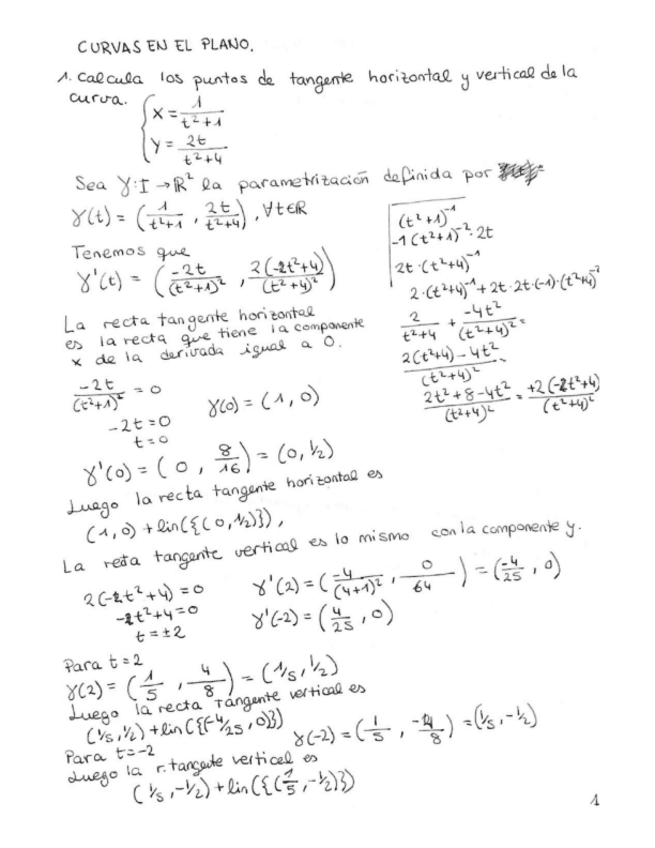 CURVAS EN EL PLANO.
1. Calcula los puntos de tangente horizontal y vertical de la
curva. { x = 1/(t²+1)
y = 2t/(t²+4)
Sea γ: I → ℝ² la parametrización definida por
γ(t) = (1/(t²+1), 2t/(t²+4)), ∀t∈ℝ
Tenemos que
γ'(t) = (-2t/(t²+1)², 2(-2t²+4)/(t²+4)²)
(t²+1)⁻¹
-1(t²+1)⁻²·2t
2t·(t²+4)⁻¹
2·(t²+4)⁻¹+2t·2t·(-1)·(t²+4)⁻²
2/(t²+4) + -4t²/(t²+4)² =
2(t²+4)-4t²/(t²+4)² =
2t²+8-4t²/(t²+4)² = +2(-2t²+4)/(t²+4)²
La recta tangente horizontal
es la recta que tiene la componente
x de la derivada igual a 0.
-2t/(t²+1)² = 0
-2t=0
t=0
γ(0) = (1, 0)
γ'(0) = (0, 8/16) = (0, 1/2)
Luego la recta tangente horizontal es
(1,0) + lin({(0,1/2)}),
La recta tangente vertical es lo mismo con la componente y.
2(-2t²+4)=0
-2t²+4=0
t=±2
γ'(2) = (-4/(4+1)², 0/64) = (-4/25, 0)
γ'(-2) = (4/25, 0)
Para t=2
γ(2) = (1/5, 4/8) = (1/5, 1/2)
Luego la recta tangente vertical es
(1/5, 1/2) + lin({(-4/25, 0)})
γ(-2) = (1/5, -4/8) = (1/5, -1/2)
Para t=-2
Luego la r. tangente vertical es
(1/5, -1/2) + lin({(1/5, -1/2)})
1